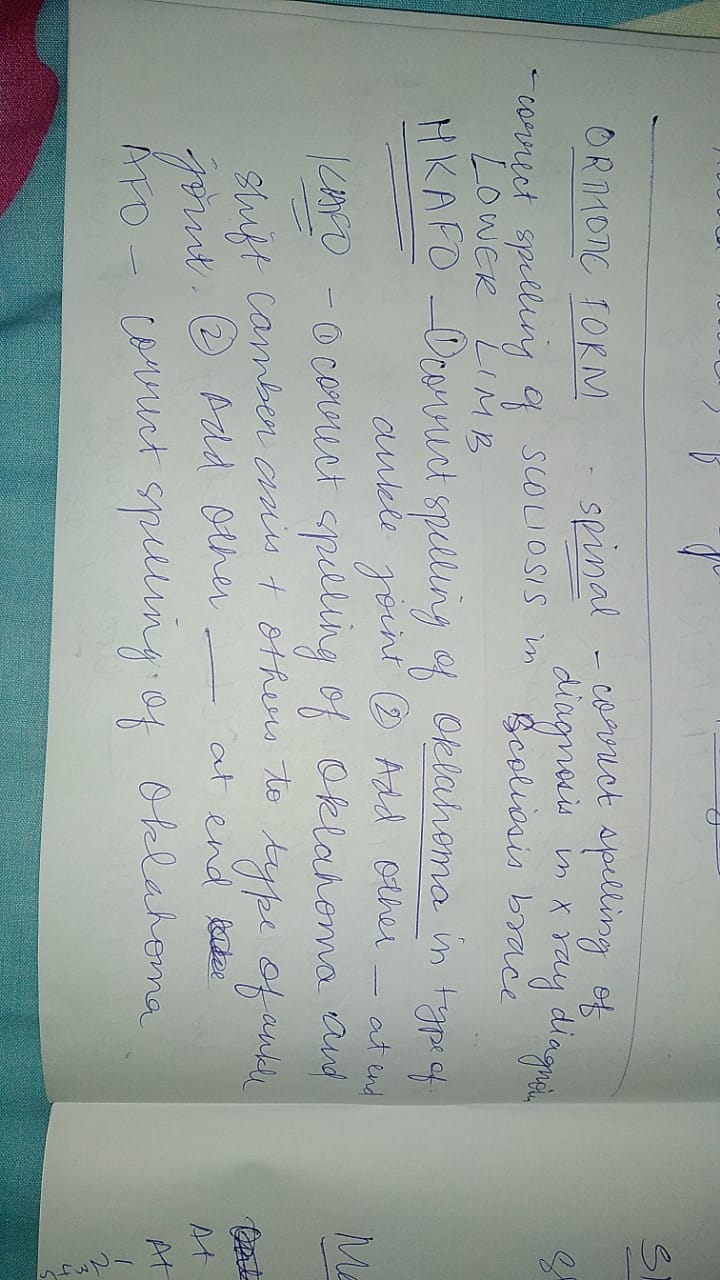 ORTHOTIC FORM - spinal - correct spelling of
diagnosis in x ray diagnosis
- correct spelling of SCOLIOSIS in Scoliosis brace
LOWER LIMB
HKAFO - ① correct spelling of Oklahoma in type of
ankle joint ② Add Other _ at end
KAFO - ① correct spelling of Oklahoma and
shift camber axis + others to type of ankle
joint. ② Add Other __ at end
AFO - correct spelling of Oklahoma
At
At
1
2
3
4
5